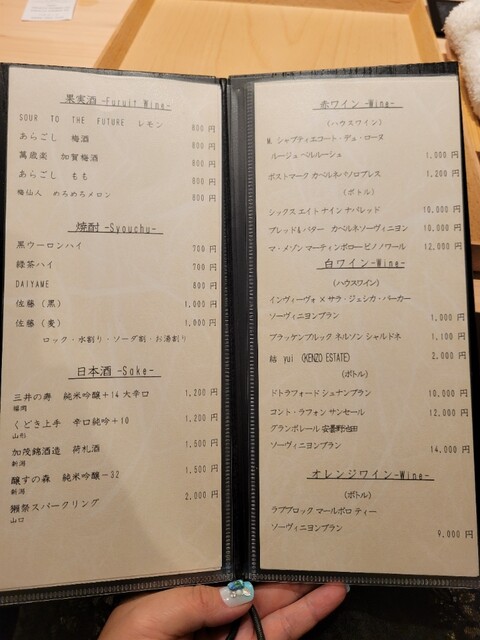 果実酒 -Furuit Wine-
SOUR TO THE FUTURE レモン 800 円
あらごし 梅酒 800 円
萬歳楽 加賀梅酒 800 円
あらごし もも 800 円
梅仙人 めろめろメロン 800 円
焼酎 -Syouchu-
黒ウーロンハイ 700 円
緑茶ハイ 700 円
DAIYAME 800 円
佐藤（黒） 1,000 円
佐藤（麦） 1,000 円
ロック・水割り・ソーダ割・お湯割り
日本酒 -Sake-
三井の寿 純米吟醸＋14 大辛口 1,200 円
福岡
くどき上手 辛口純吟＋10 1,200 円
山形
加茂錦酒造 荷札酒 1,500 円
新潟
醸すの森 純米吟醸－32 1,500 円
新潟
獺祭スパークリング 2,000 円
山口
赤ワイン -Wine-
（ハウスワイン）
M. シャプティエコート・デュ・ローヌ
ルージュ ベルルーシュ 1,000 円
ポストマーク カベルネパソロブレス 1,200 円
（ボトル）
シックス エイト ナイン ナパレッド 10,000 円
ブレッド&バター カベルネソーヴィニヨン 10,000 円
マ・メゾン マーティンボロー ピノノワール 12,000 円
白ワイン -Wine-
（ハウスワイン）
インヴィーヴォ × サラ・ジェシカ・パーカー
ソーヴィニヨンブラン 1,000 円
ブラッケンブルック ネルソン シャルドネ 1,100 円
結 yui （KENZO ESTATE） 2,000 円
（ボトル）
ドトラフォード シュナンブラン 10,000 円
コント・ラフォン サンセール 12,000 円
グランポレール 安曇野池田
ソーヴィニヨンブラン 14,000 円
オレンジワイン -Wine-
（ボトル）
ラブブロック マールボロ ティー
ソーヴィニヨンブラン 9,000 円